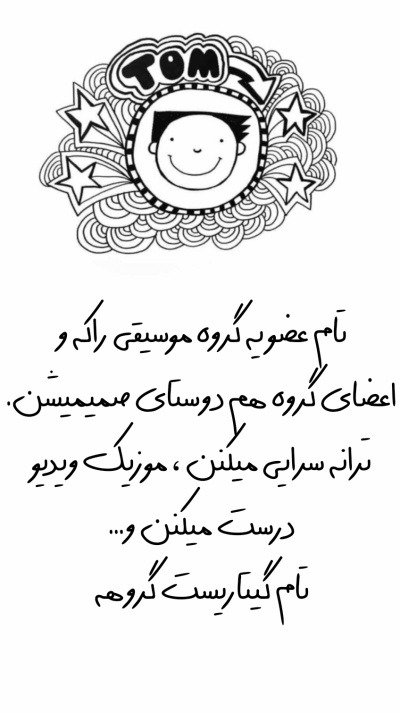 TOM
تام عضو یه گروه موسیقی راکه و
اعضای گروه هم دوستای صمیمیشن.
ترانه سرایی میکنن ، موزیک ویدیو
درست میکنن و...
تام گیتاریست گروهه